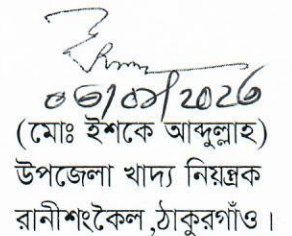 (মোঃ ইশকে আব্দুল্লাহ)
উপজেলা খাদ্য নিয়ন্ত্রক
রানীশংকৈল ,ঠাকুরগাঁও।